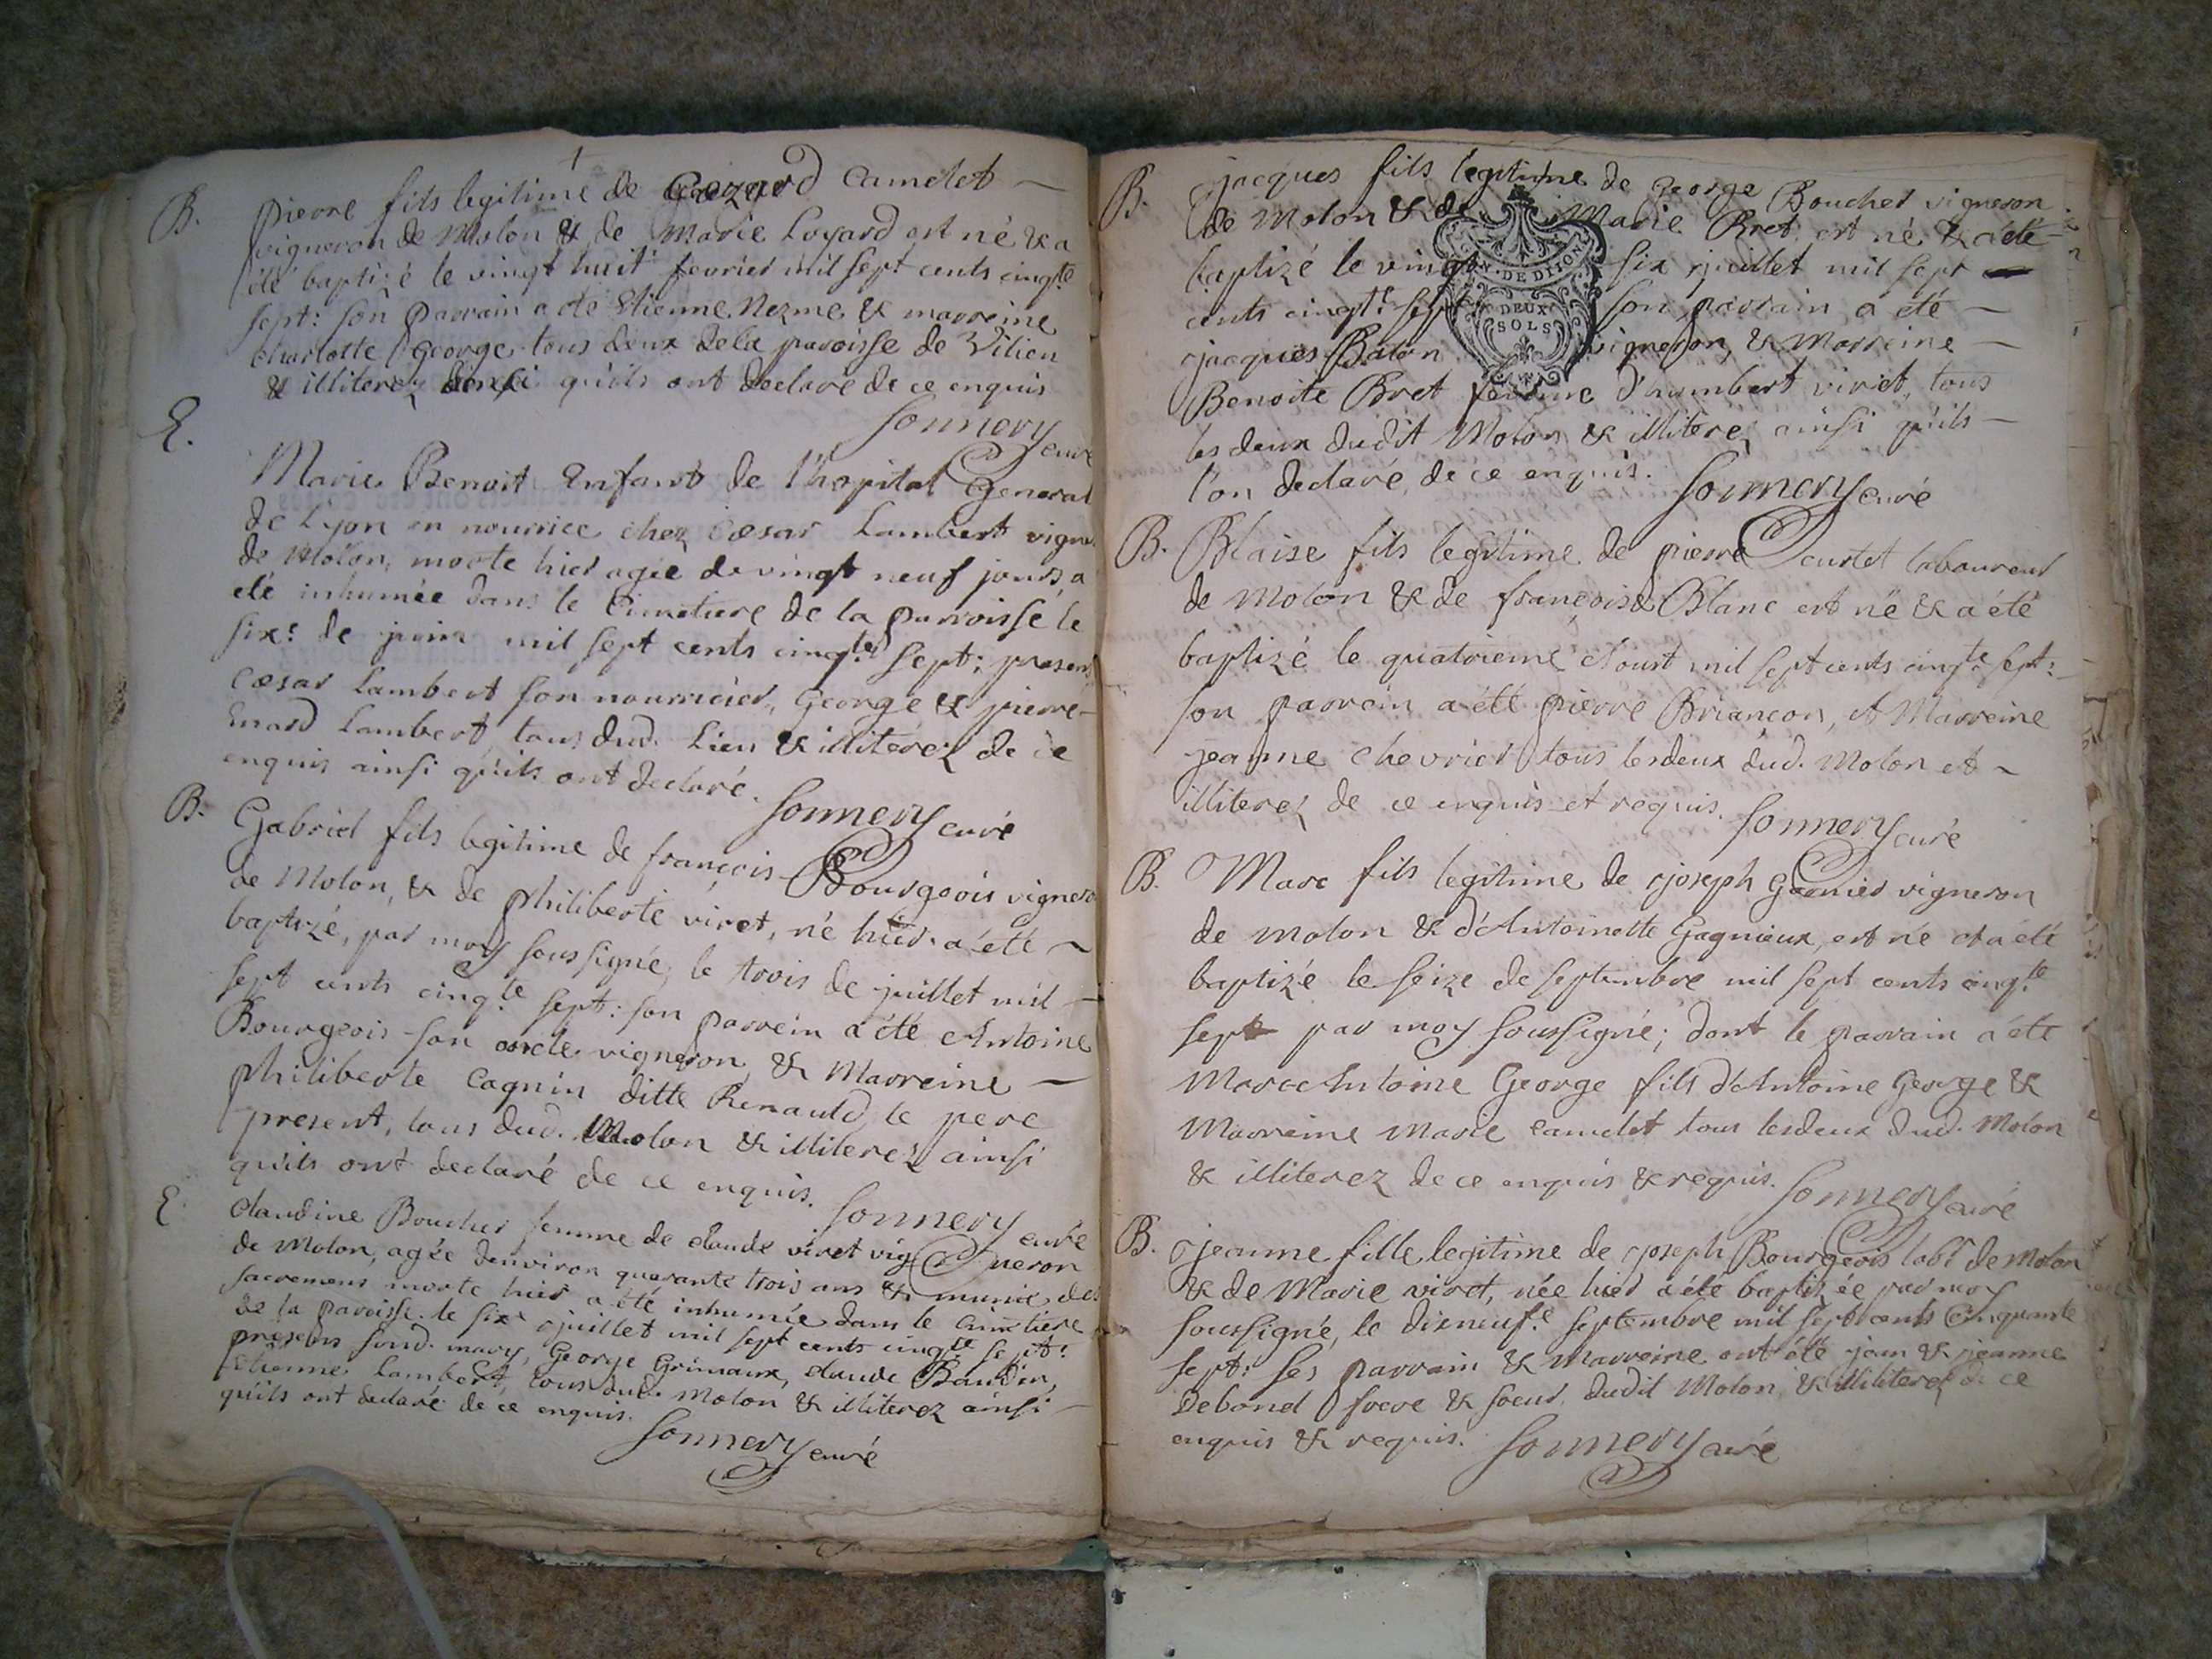 B. pierre fils legitime de Cezard Camelet
vigneron de Molon & de Marie Loyard est né & a
été baptizé le vingt huit fevrier mil sept cents cinqte
sept: son parrain a ete Etienne Nezme & marreine
charlotte George tous deux dela paroisse de Vilieu
& illiterez ainsi qu'ils ont declaré de ce enquis
Sonnery curé
E. Marie Benoit Enfant de l'hopital General
de Lyon en nourrice chez Cæsar Lambert vigne.
de Molon, morte hier agée de vingt neuf jours, a
eté inhumée dans le Cimetiere de la parroisse le
sixe de juin mil sept cents cinqte sept; presens
Cæsar Lambert son nourricier, George & pierre
Enard Lambert, tous dud. Lieu & illiterez de ce
enquis ainsi qu'ils ont declaré.
Sonnery curé
B. Gabriel fils legitime de françois Bourgeois vigneron
de Molon, & de philiberte viret, né hier a été
baptizé, par moy soussigné, le trois de juillet mil
sept cents cinqte sept: son parrein a été Antoine
Bourgeois son oncle vigneron & Marreine
philiberte Cagnin ditte Renauld le pere
present, tous dud. Molon & illiterez ainsi
qu'ils ont declaré de ce enquis.
Sonnery curé
E. Claudine Bouchet femme de claude viret vigneron
de Molon, agée denviron quarante trois ans & munie des
sacremens morte hier a été inhumée dans le Cimetiere
de la paroisse le sixe juillet mil sept cents cinqte sept:
presens sond. mary, George Grimaux, claude Baudin,
Etienne Lambert, tous dud. Molon & illiterez ainsi
qu'ils ont declaré de ce enquis.
Sonnery curé
B. jacques fils legitime de George Bouchet vigneron
de Molon & de Marie Bret est né & a été
baptizé le vingt six juillet mil sept
cents cinqte sept son parrain a été
jacques Balon vigneron, & Marreine
Benoite Bret femme d'humbert viret, tous
les deux dudit Molon & illiterez ainsi qu'ils
l'on declaré de ce enquis.
Sonnery curé
GEN. DE DIJON
DEUX
SOLS
B. Blaise fils legitime de pierre Curtet laboureur
de Molon & de françoise Blanc est né & a été
baptizé le quatrieme d'oust mil sept cents cinqte sept:
son parrein a été pierre Briançon, et Marreine
jeanne chevrier tous lesdeux dud. Molon et
illiterez de ce enquis et requis.
Sonnery curé
B. Marc fils legitime de joseph Garnier vigneron
de Molon & d'Antoinette Gagnieux, est né et a été
baptizé le seize de septembre mil sept cents cinqte
sept par moy soussigné; dont le parrain a été
Marc Antoine George fils d'Antoine George &
Marreine Marie Camelet tous lesdeux dud. Molon
& illiterez de ce enquis & requis.
Sonnery curé
B. jeanne fille legitime de joseph Bourgeois labr de Molon
& de Marie viret, née hier a été baptizée par moy
soussigné, le dixneufe septembre mil sept cents Cinquante
sept: ses parrain & Marreine ont été jean & jeanne
Debond frere & soeur dudit Molon, & illiterez de ce
enquis & requis.
Sonnery curé